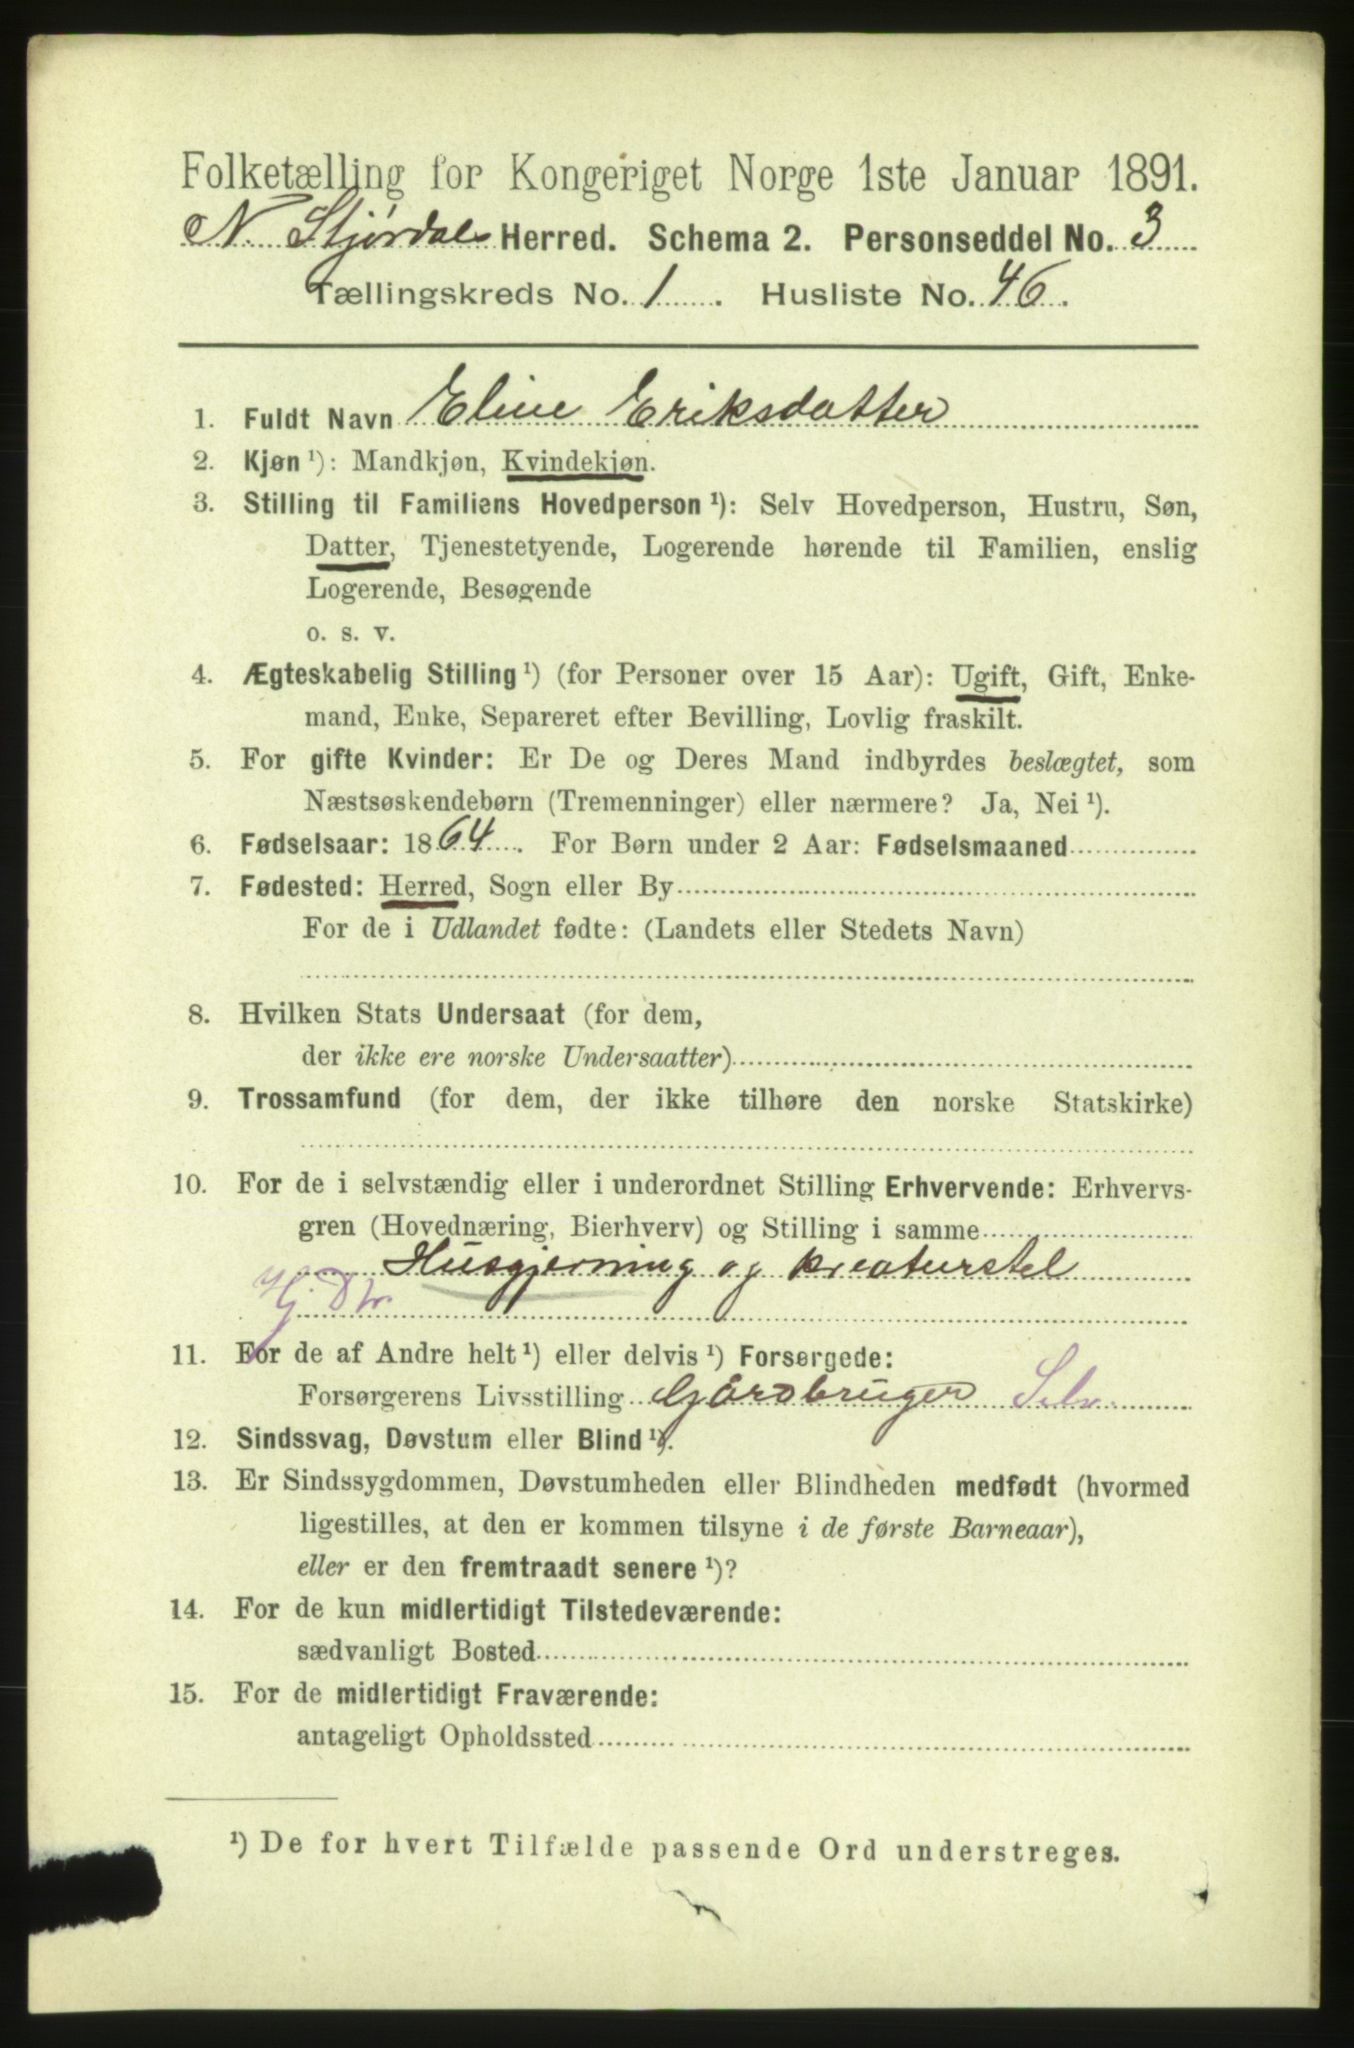 Folketælling for Kongeriget Norge 1ste Januar 1891.
N. Stjørdals Herred. Schema 2. Personseddel No. 3
Tællingskreds No. 1. Husliste No. 46.
1. Fuldt Navn Eline Eriksdatter
2. Kjøn ¹): Mandkjøn, Kvindekjøn.
3. Stilling til Familiens Hovedperson ¹): Selv Hovedperson, Hustru, Søn,
Datter, Tjenestetyende, Logerende hørende til Familien, enslig
Logerende, Besøgende
o. s. v.
4. Ægteskabelig Stilling ¹) (for Personer over 15 Aar): Ugift, Gift, Enke-
mand, Enke, Separeret efter Bevilling, Lovlig fraskilt.
5. For gifte Kvinder: Er De og Deres Mand indbyrdes beslægtet, som
Næstsøskendebørn (Tremenninger) eller nærmere? Ja, Nei ¹).
6. Fødselsaar: 1864. For Børn under 2 Aar: Fødselsmaaned
7. Fødested: Herred, Sogn eller By
For de i Udlandet fødte: (Landets eller Stedets Navn)
8. Hvilken Stats Undersaat (for dem,
der ikke ere norske Undersaatter)
9. Trossamfund (for dem, der ikke tilhøre den norske Statskirke)
10. For de i selvstændig eller i underordnet Stilling Erhvervende: Erhvervs-
gren (Hovednæring, Bierhverv) og Stilling i samme
Husgjerning og kreaturstel
11. For de af Andre helt ¹) eller delvis ¹) Forsørgede:
Forsørgerens Livsstilling Gårdbruger Selv.
12. Sindssvag, Døvstum eller Blind ¹).
13. Er Sindssygdommen, Døvstumheden eller Blindheden medfødt (hvormed
ligestilles, at den er kommen tilsyne i de første Barneaar),
eller er den fremtraadt senere ¹)?
14. For de kun midlertidigt Tilstedeværende:
sædvanligt Bosted
15. For de midlertidigt Fraværende:
antageligt Opholdssted
¹) De for hvert Tilfælde passende Ord understreges.